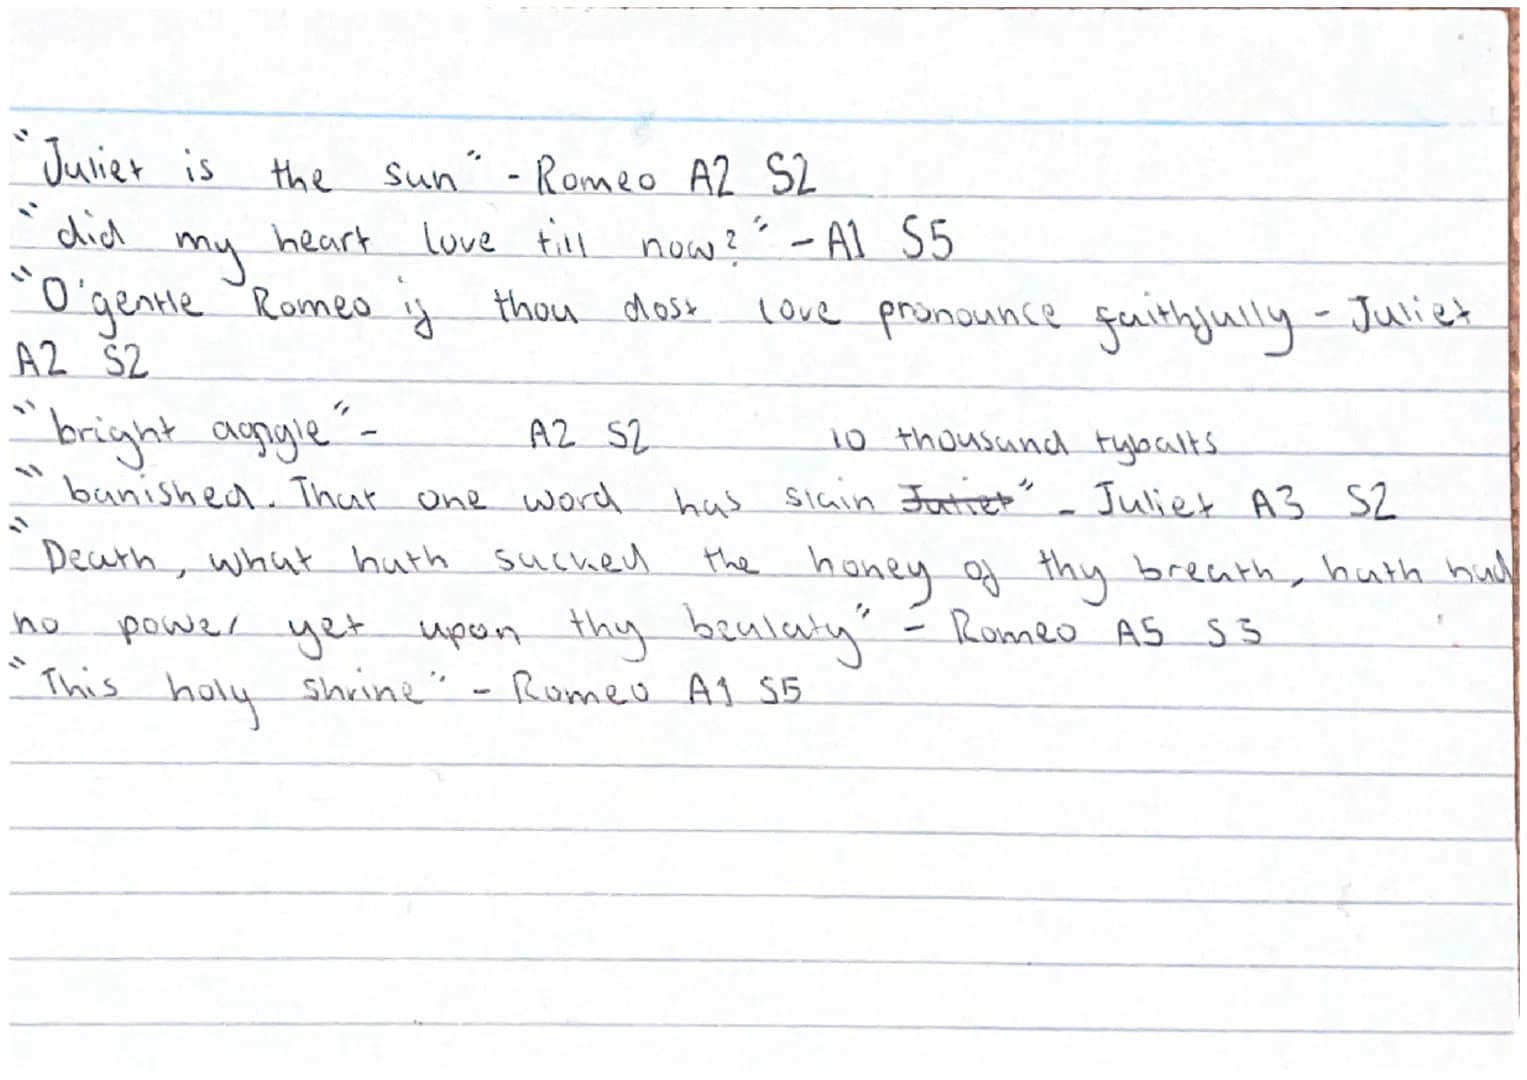 "Juliet is the sun" - Romeo A2 S2
"did my heart love till now?" - A1 S5
"O'gentle Romeo if thou dost love pronounce faithfully - Juliet
A2 S2
"bright aangle" - A2 S2 10 thousand tybalts
"banished. That one word has slain Juliet" - Juliet A3 S2
"Death, what hath sucked the honey of thy breath, hath had
no power yet upon thy beulaty" - Romeo A5 S3
"This holy shrine" - Romeo A1 S5